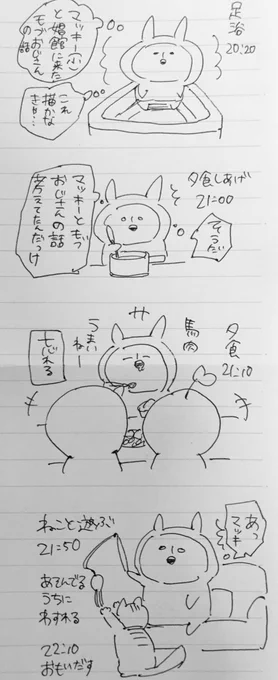 足浴
20:20
マッキー小
と娼館に来た
モブおじさん
の話
これ
描かな
きゃ…
夕食しあげ
21:00
マッキーとモブ
おじさんの話
考えてたんだっけ
夕食
21:10
馬肉
うまい
ねー
忘れる
あっ
マッキー
ねこと遊ぶ
21:50
あそんでる
うちに
わすれる
22:10
おもいだす